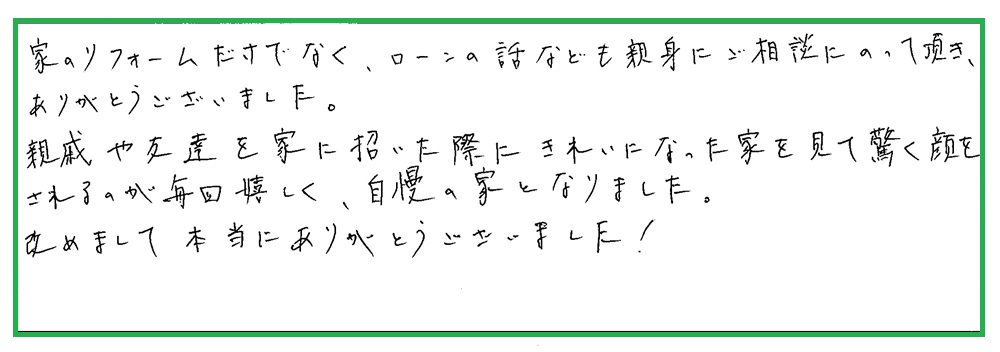 家のリフォームだけでなく、ローンの話なども親身にご相談にのって頂き、
ありがとうございました。
親戚や友達を家に招いた際にきれいになった家を見て驚く顔を
されるのが毎回嬉しく、自慢の家となりました。
改めまして本当にありがとうございました!